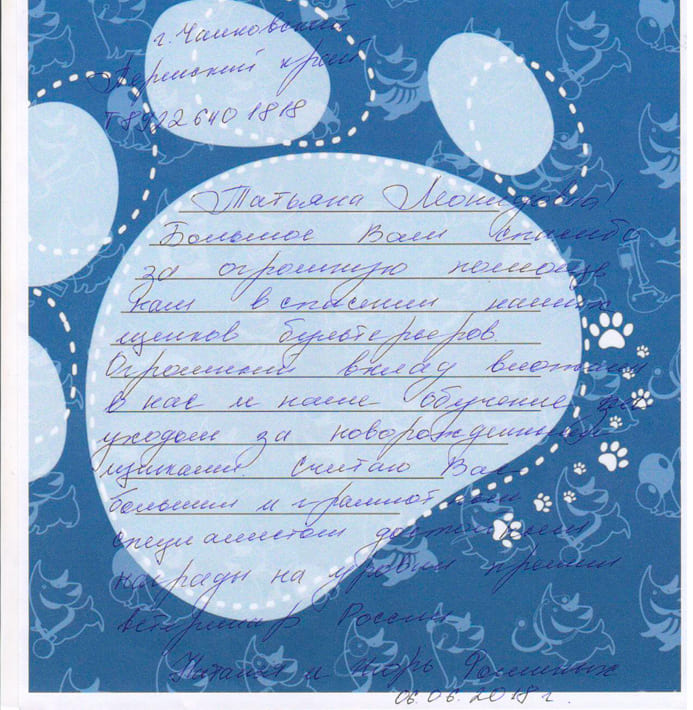 г. Чайковский
Пермский край
т 8922 640 1818
Татьяна Леонидовна!
Большое Вам спасибо
за огромную помощь
нам в спасении наших
щенков бультерьеров.
Огромный вклад вложили
в нас и наше обучение за
уходом за новорожденными
щенками. Считаю Вас
большим и грамотным
специалистом достойным
награды на уровни премии
ветеринар России
Наталья и Игорь
06.06.2018 г.